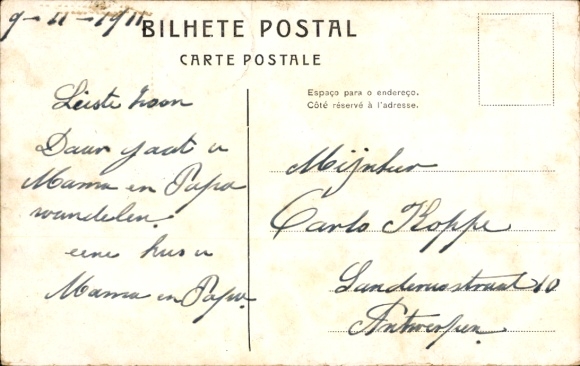 9-11-1911
BILHETE POSTAL
CARTE POSTALE
Espaço para o endereço.
Côté réservé à l'adresse.
Liefste zoon
Daar gaat u
Mama en Papa
wandelen.
eene kus u
Mama en Papa.
Mijnheer
Carlo Koppe
Sanderusstraat 10
Antwerpen.